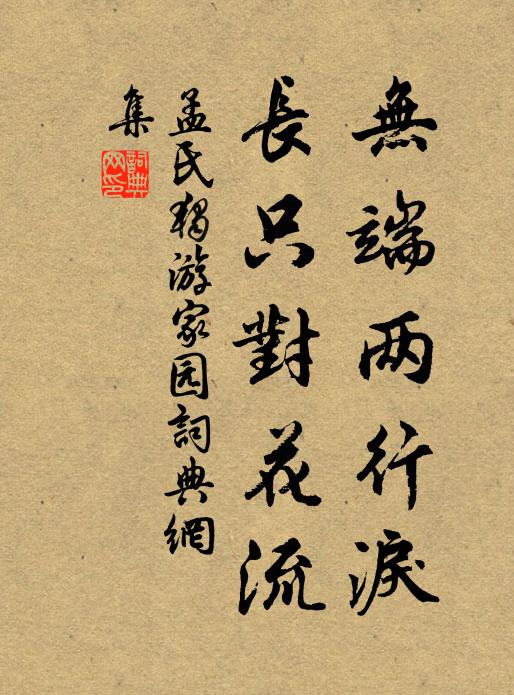 無端两行淚
長只對花流
孟氏獨游家园詞典網
集
詞典
网印